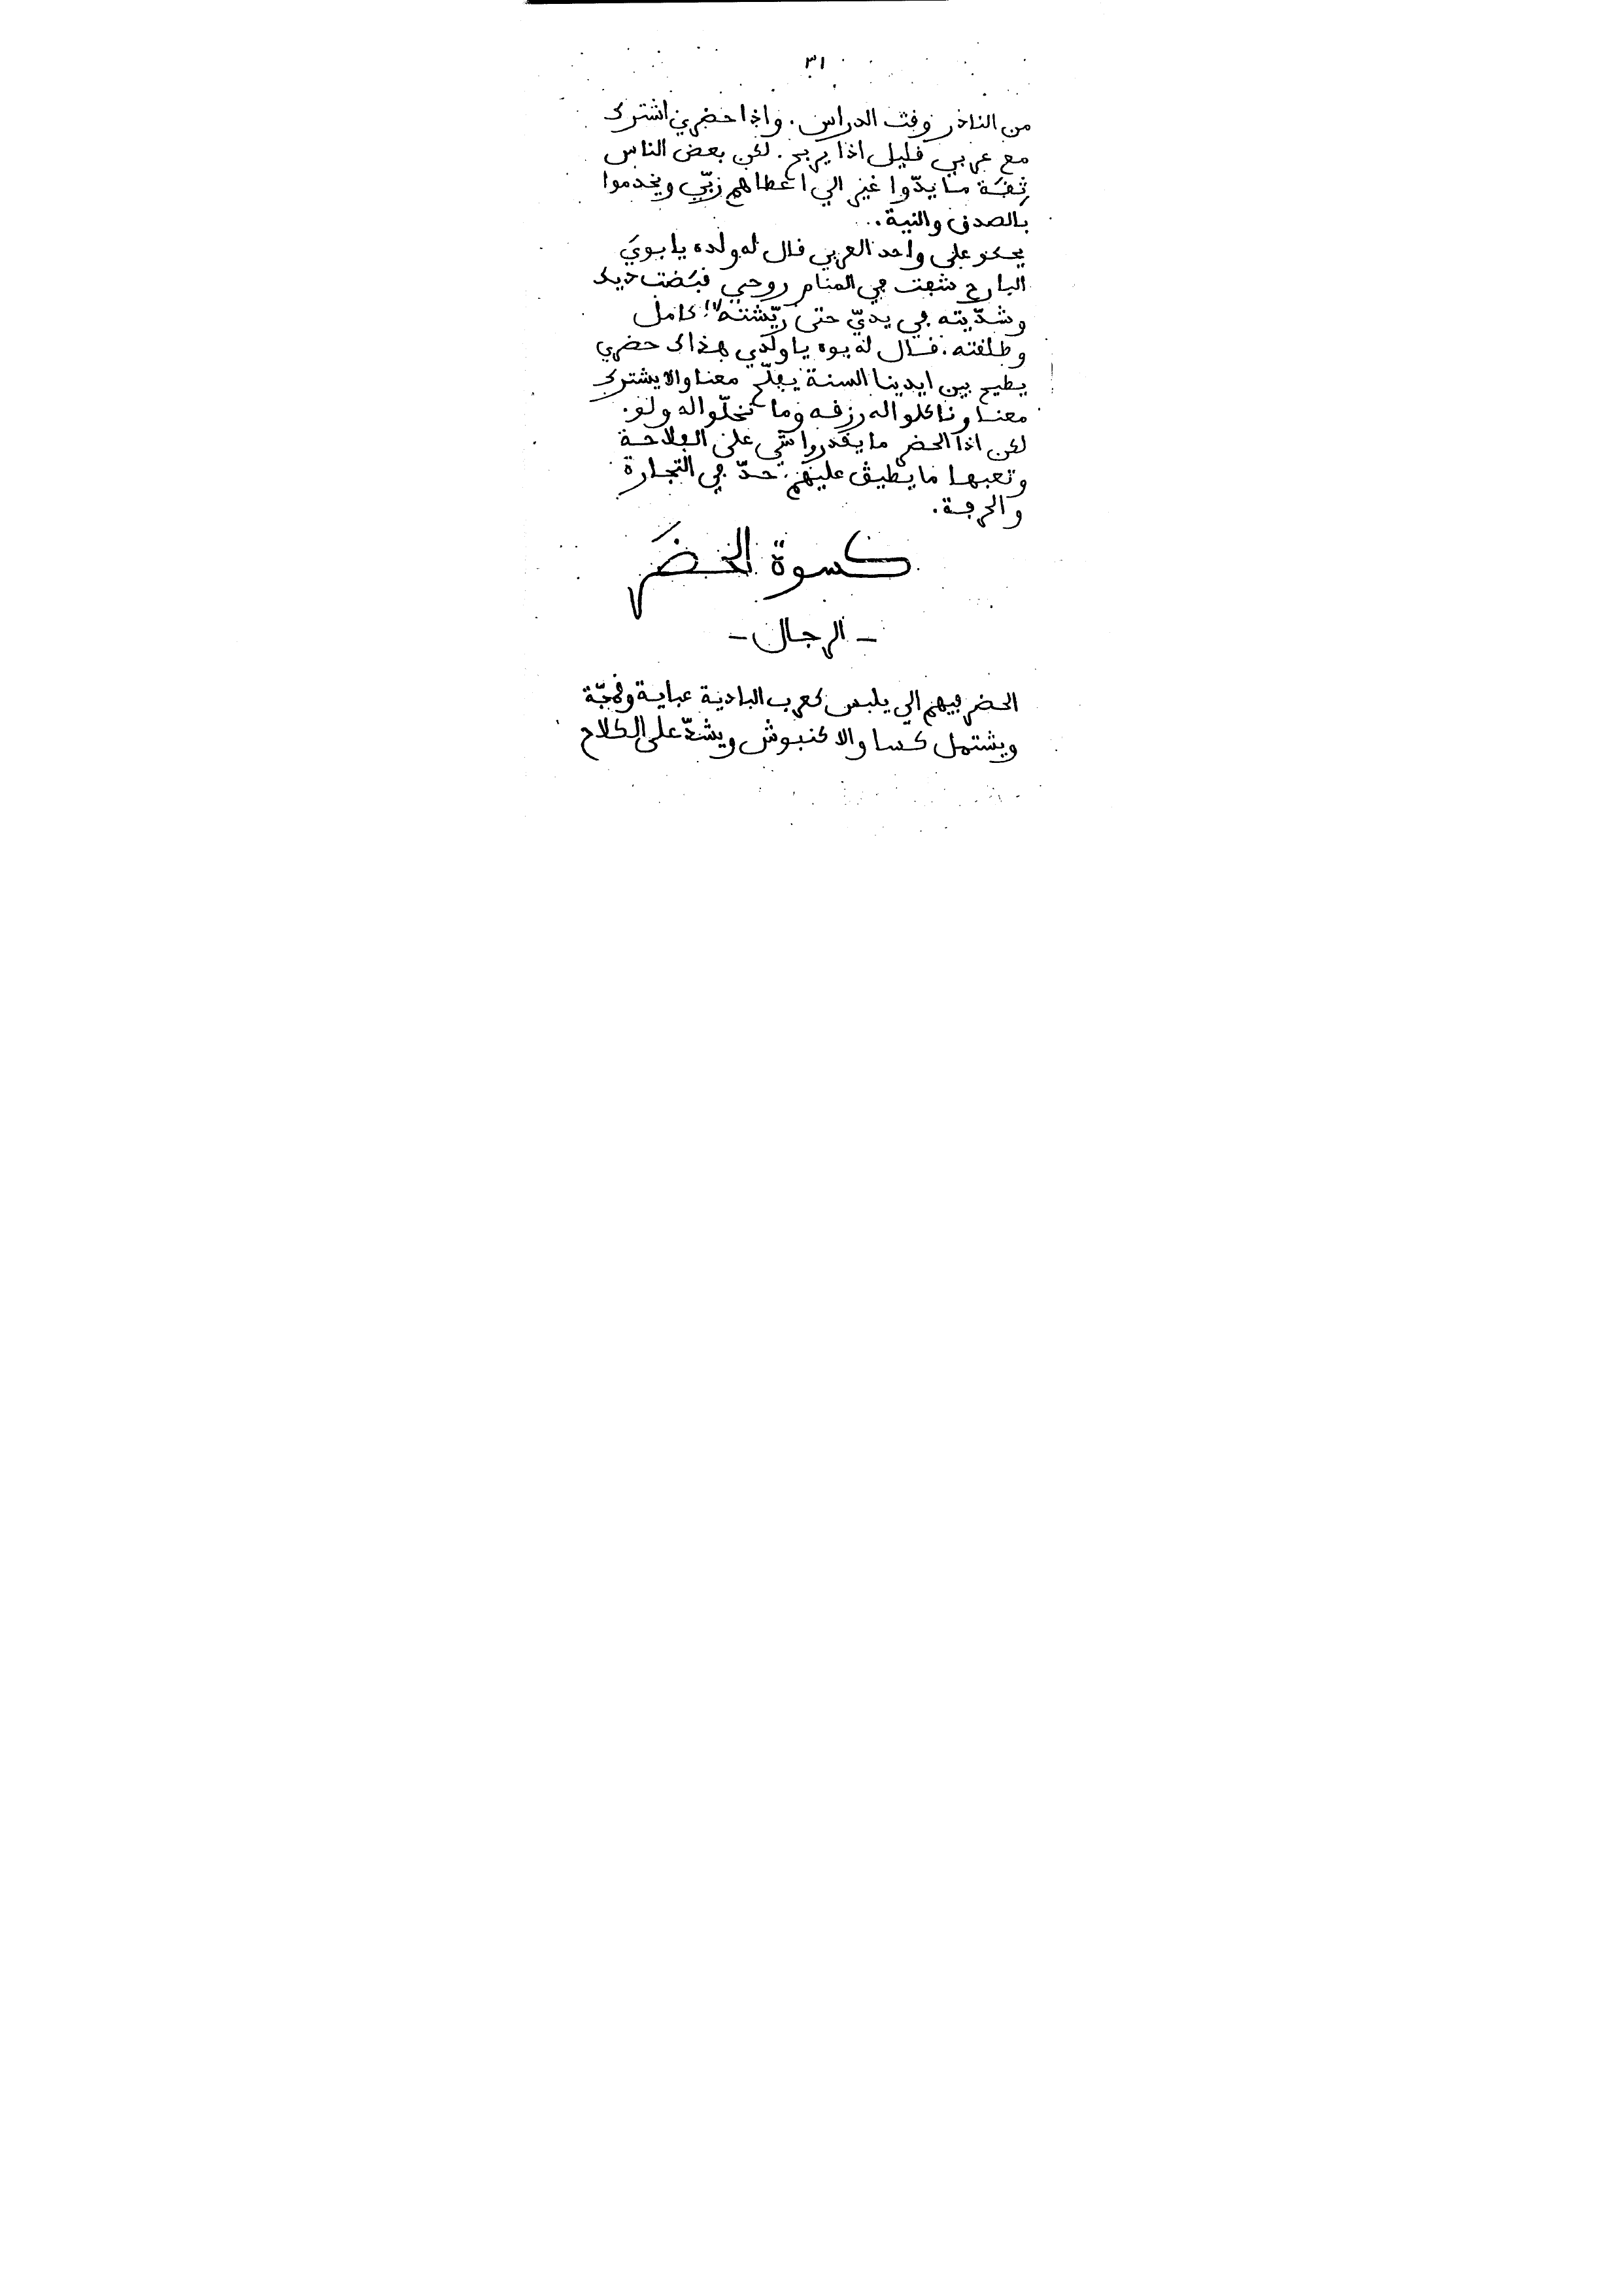 ٣١
من النادر وقت الدراس. واذا حضري اشترك
مع عربي قليل اذا يربح. لكن بعض الناس
ثقة ما يدّوا غير الي اعطاهم ربّي ويخدموا
بالصدق والنية.
يحكو على واحد العربي قال له ولده يا بوي
البارح شفت في المنام روحي قبضت ديك
وشدّيته في يديّ حتى ريّشته كامل
وطلقته. قال له بوه يا ولدي هذاك حضري
يطيح بين ايدينا السنة يفلّح معنا والا يشترك
معنا وناكلوا له رزقه وما نخلّوا له
لكن اذا الحضر ما يقدروا شي على الفلاحة
وتعبها ما يطيق عليهم حدّ في التجارة
والحرفة.
كسوة الحضر
- الرجال -
الحضر فيهم الي يلبس كعرب البادية عباية وقمجّة
ويشتمل كسا والا كنبوش ويشدّ على الكلاح